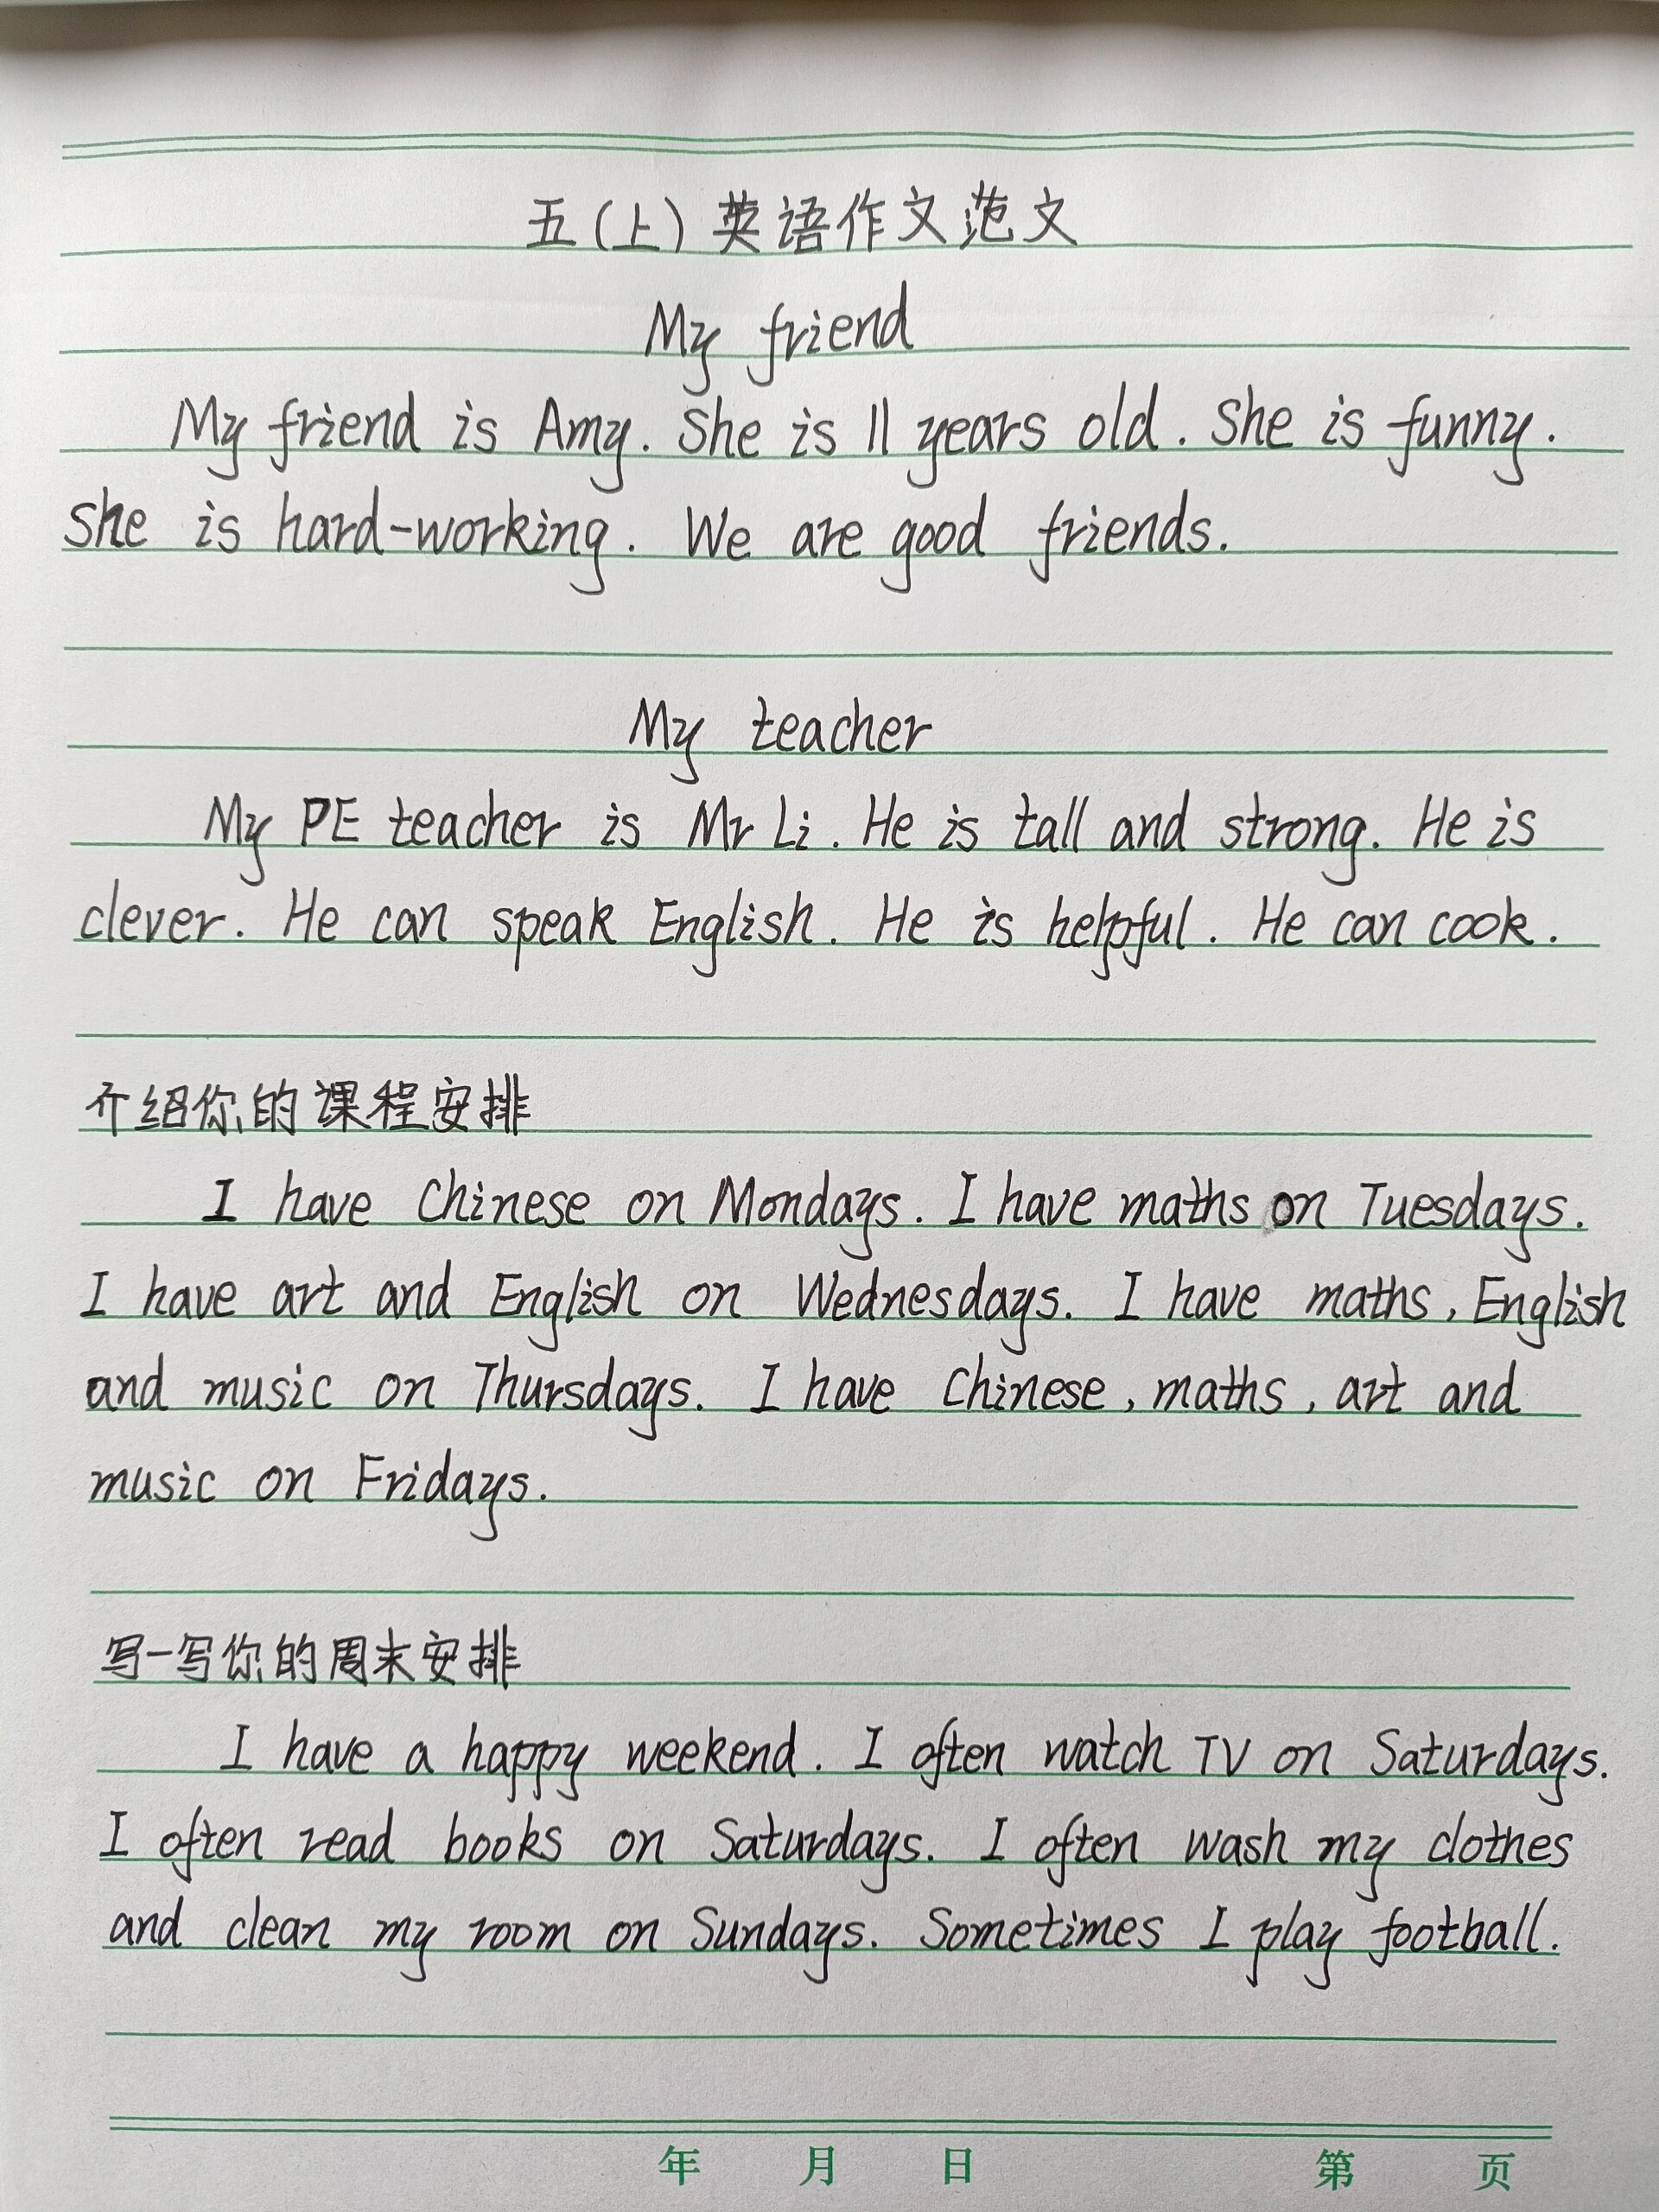 五(上)英语作文范文
My friend
My friend is Amy. She is 11 years old. She is funny.
She is hard-working. We are good friends.
My teacher
My PE teacher is Mr Li. He is tall and strong. He is
clever. He can speak English. He is helpful. He can cook.
介绍你的课程安排
I have Chinese on Mondays. I have maths on Tuesdays.
I have art and English on Wednesdays. I have maths, English
and music on Thursdays. I have Chinese, maths, art and
music on Fridays.
写一写你的周末安排
I have a happy weekend. I often watch TV on Saturdays.
I often read books on Saturdays. I often wash my clothes
and clean my room on Sundays. Sometimes I play football.
年 月 日 第 页